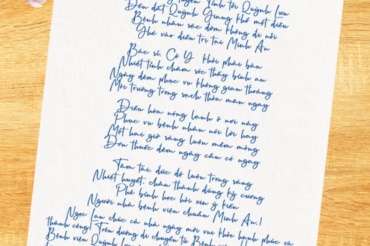 Tỉnh tới Quỳnh Lưu
Đến đất Quỳnh Giang khó một điều
Bệnh nhân xác đêm không đi nổi
Ghé vào điều trị tại Minh An
Bác sĩ, Cô Y khỏi phải bàn
Nhiệt tình chăm sóc thấy bình an
Ngày đêm phục vụ không gian thoáng
Môi trường trong sạch thôn man ngay
Điều hòa nóng lạnh ở nơi này
Phục vụ bệnh nhân nói lời hay
Một hai giờ sáng luôn mềm mỏng
Đơn thuốc đêm ngày cần có ngay
Tâm tài đức độ luôn trong sáng
Nhiệt huyết chân thành đúng kỷ cương
Phê bình học hỏi xin ý kiến
Người nhà bệnh viện chuẩn Minh An.!
Ngọc Lan chúc cả nhà ngày mới vui khỏe hạnh phúc và
thành công! Trên đường di chuyển từ Bệnh
Bệnh viện Quỳnh Lưu